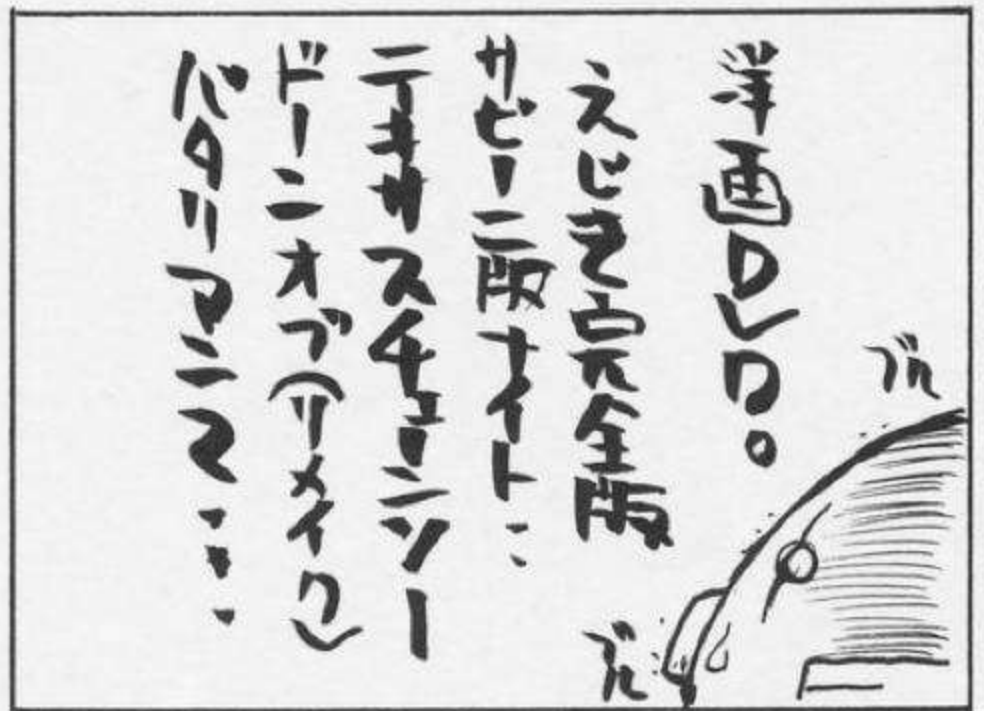 洋画DVD。
えじき完全版
サビーニ版ナイト‥
テキサスチェーンソー
ドーンオブ(リメイク)
バタリアン2・・・
ブル
ブル